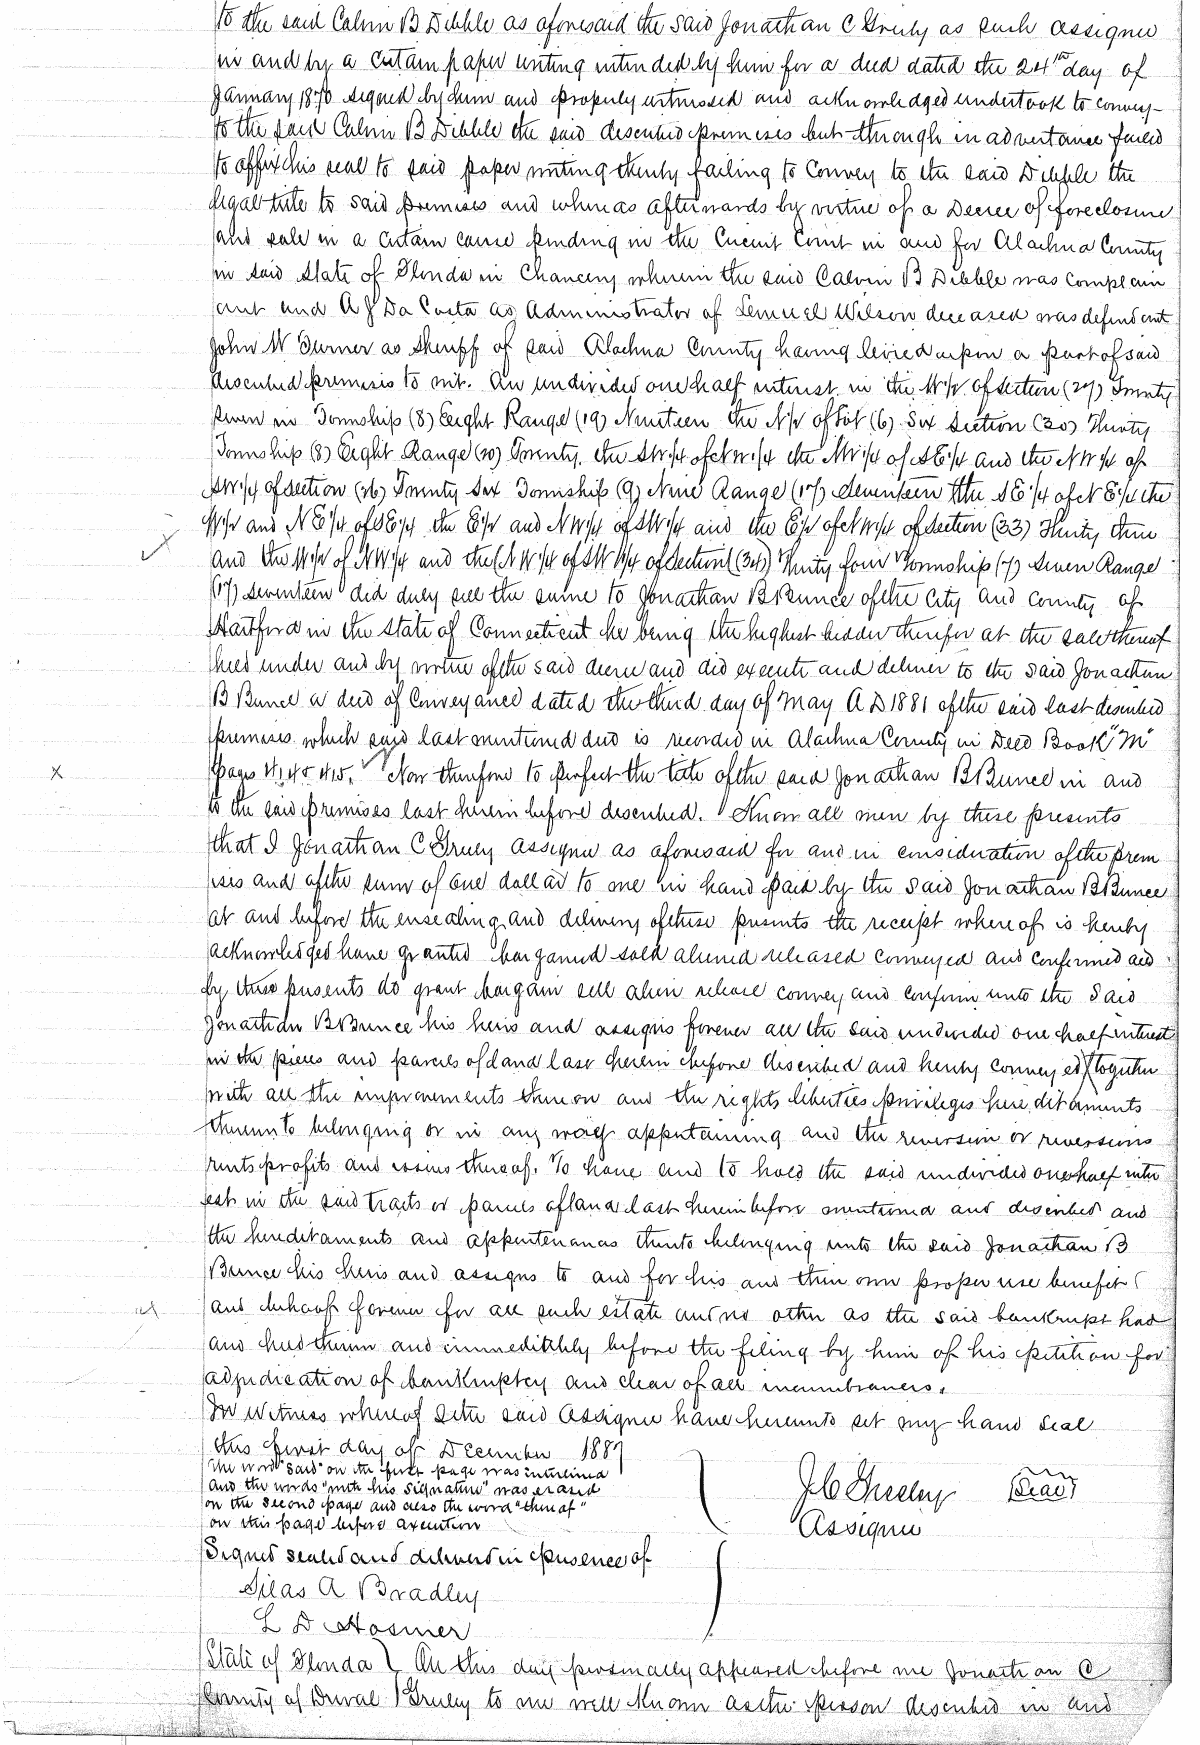 to the said Calvin B Dibble as aforesaid the said Jonathan C Greely as such assignee
in and by a certain paper writing intended by him for a deed dated the 24th day of
January 1870 signed by him and properly witnessed and acknowledged undertook to convey
to the said Calvin B Dibble the said described premises but through in advertance failed
to affix his seal to said paper writing thereby failing to convey to the said Dibble the
legal title to said premises and whereas afterwards by virtue of a Decree of foreclosure
and sale in a certain cause pending in the Circuit Court in and for Alachua County
in said State of Florida in Chancery wherein the said Calvin B Dibble was complain
ant and A J Da Costa as Administrator of Lemuel Wilson deceased was defendant
John W Turner as Sheriff of said Alachua County having levied upon a part of said
described premises to wit. An undivided one half interest in the W½ of section (27) Twenty
seven in Township (8) Eight Range (19) Nineteen the N½ of Lot (6) Six Section (30) Thirty
Township (8) Eight Range (20) Twenty. the SW¼ of NW¼ the NW¼ of SE¼ and the NW¼ of
SW¼ of section (26) Twenty Six Township (9) Nine Range (17) Seventeen the SE¼ of NE¼ the
W½ and NE¼ of SE¼ the E½ and NW¼ of SW¼ and the E½ of NW¼ of Section (33) Thirty three
and the W½ of NW¼ and the (NW¼ of SW¼ of Section (34)) Thirty four Township (7) Seven Range
(17) seventeen did duly sell the same to Jonathan B Bunce of the City and County of
Hartford in the State of Connecticut he being the highest bidder therefor at the sale thereof
held under and by virtue of the said decree and did execute and deliver to the said Jonathan
B Bunce a deed of Conveyance dated the third day of May A D 1881 of the said last described
premises which said last mentioned deed is recorded in Alachua County in Deed Book "M"
pages Now therefore to perfect the title of the said Jonathan B Bunce in and
to the said premises last herein before described. Know all men by these presents
that I Jonathan C Greely assignee as aforesaid for and in consideration of the prem
ises and of the sum of one dollar to me in hand paid by the said Jonathan B Bunce
at and before the ensealing and delivery of these presents the receipt where of is hereby
acknowledged have granted bargained sold aliened released conveyed and confirmed and
by these presents do grant bargain sell alien release convey and confirm unto the said
Jonathan B Bunce his heirs and assigns forever all the said undivided one half interest
in the pieces and parcels of land last herein before described and hereby conveyed (together
with all the improvements thereon and the rights liberties privileges hereditaments
thereunto belonging or in any way appertaining and the reversion or reversions
rents profits and issues thereof. To have and to hold the said undivided one half inter
est in the said tracts or parcels of land last herein before mentioned and described and
the hereditaments and appurtenances thereto belonging unto the said Jonathan B
Bunce his heirs and assigns to and for his and their own proper use benefit
and behoof forever for all such estate and no other as the said bankrupt had
and held therein and immeditbly before the filing by him of his petition for
adjudication of bankruptcy and clear of all incumbrances.
In Witness whereof I the said Assignee have hereunto set my hand seal
this first day of December 1887
The word "said" on the first page was interlined
and the words "with his signature" was erased
on the second page and also the word "thereof"
on this page before execution
J C Greeley Seal
Assignee
Signed sealed and delivered in presence of
Silas A Bradley
L D Hosmer
State of Florida } On this day personally appeared before me Jonathan C
County of Duval } Greeley to me well known as the person described in and